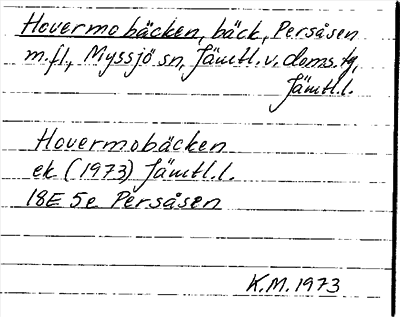 Hovermobäcken, bäck, Persåsen
m.fl., Myssjö sn, Jämtl.v. doms.tg,
Jämtl.l.
Hovermobäcken
ek (1973) Jämtl.l.
18E 5e Persåsen
K.M. 1973